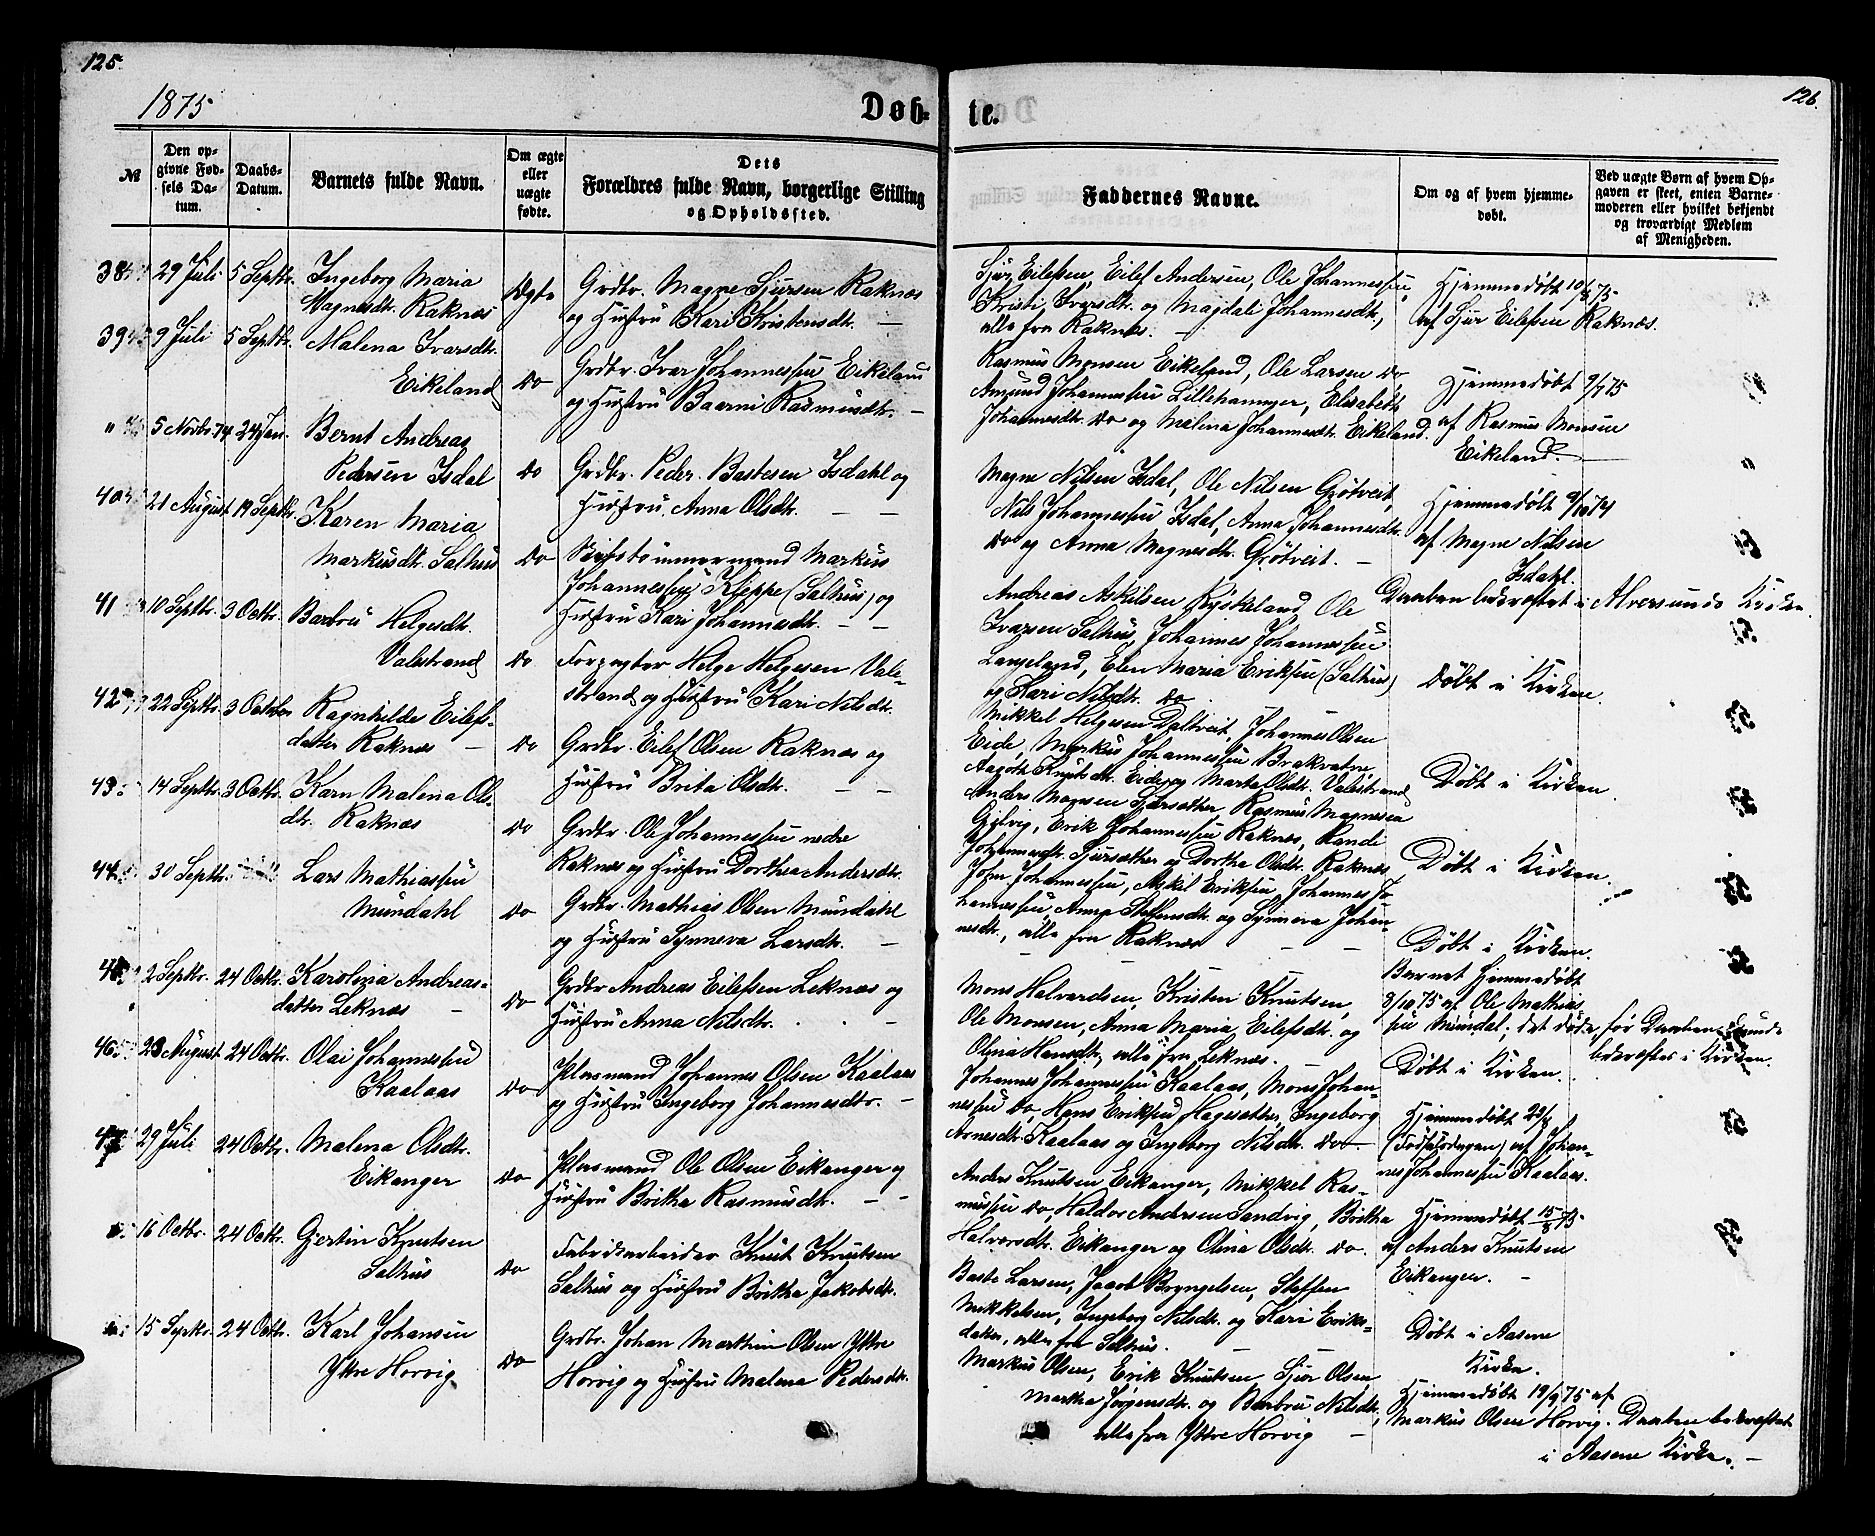 125.
1875
Døb-
№
Den op-
givne Fød-
sels Da-
tum.
Daabs-
Datum.
Barnets fulde Navn.
Om ægte
eller
uægte
fødte.
Dets
Forældres fulde Navn, borgerlige Stilling
og Opholdssted.
38 29 Juli 5 Septbr. Ingeborg Maria
Magnesdt. Raknæs
Ægte
Grdbr. Magne Sjursen Raknæs
og Hustru Kari Kristensdtr. —
39 9 Juli 5 Septbr. Malena Ivarsdtr.
Eikeland
Do
Grdbr. Ivar Johannessen Eikeland
og Hustru Baarni Rasmusdtr. —
" 5 Novbr. 74 24 Jan. Bernt Andreas
Pedersen Isdal
Do
Grdbr. Peder Bastesen Isdahl og
Hustru Anna Olsdtr. — —
40 21 August 19 Septbr. Karen Maria
Markusdt. Salhus
Do
Skibstømmermand Markus
Johannessen Kleppe (Salhus) og
Hustru Kari Johannesdtr. — —
41 10 Septbr. 3 Octbr. Barbru Helgesdtr.
Valestrand
Do
Forpagter Helge Helgesen Vale-
strand og Hustru Kari Nilsdtr.
42 22 Septbr. 3 October Ragnhilde Eilefs-
datter Raknæs —
Do
Grdbr. Eilef Olsen Raknæs og
Hustru Brita Olsdtr. — —
43 14 Septbr. 3 Octbr. Karn Malena Ols-
dtr. Raknæs
Do
Grdbr. Ole Johannessen nedre
Raknæs og Hustru Dorthea Andersdtr.
44 30 Septbr. Lars Mathiassen
Mundahl
Do
Grdbr. Mathias Olsen Mundahl
og Hustru Synneva Larsdtr. —
45 2 Septbr. 24 Octbr. Karolina Andreas-
datter Leknæs —
Do
Grdbr Andreas Eilefsen Leknæs og
Hustru Anna Nilsdtr. —
46 23 August 24 Octbr. Olai Johannessen
Kaalaas
Do
Pladsmand Johannes Olsen Kaalaas
og Hustru Ingeborg Johannesdtr. —
47 29 Juli 24 Octbr. Malena Olsdtr.
Eikanger
Do
Pladsmand Ole Olsen Eikanger og
Hustru Britha Rasmusdtr. — —
16 Octbr. 24 Octbr. Gjertin Knutsen
Salhus
Do
Fabrikarbeider Knut Knutsen
Salhus og Hustru Britha Jakobsdtr.
15 Septbr. 24 Octbr. Karl Johansen
Yttre Horvig
Do
Grdbr. Johan Marthin Olsen Yttre
Horvig og Hustru Malena Pedersdtr.
126.
te.
Faddernes Navne.
Om og af hvem hjemme-
døbt.
Ved uægte Børn af hvem Op-
gaven er skeet, enten Barne-
moderen eller hvilket bekjendt
og troværdigt Medlem
af Menigheden.
Sjur Eilefsen, Eilef Andersen, Ole Johannessen,
Kristi Ivarsdtr. og Magdali Johannesdtr.,
alle fra Raknæs. —
Hjemmedøbt 10/8 75
af Sjur Eilefsen Raknæs.
Rasmus Monsen Eikeland, Ole Larsen do
Amund Johannessen Lillehammer, Elisabeth
Johannesdtr. do og Malena Johannesdtr. Eikeland.
Hjemmedøbt 9/7 75
af Rasmus Monsen
Eikeland. —
Magne Nilsen Isdal, Ole Nilsen Grøtveit,
Nils Johannessen Isdal, Anna Johannesdtr.
Do og Anna Magnesdtr. Grøtveit. —
Hjemmedøbt 9/10 74
af Magne Nilsen
Isdahl.
Andreas Askilsen Ryskeland, Ole
Ivarsen Salhus, Johannes Johannessen
Langeland, Elen Maria Eriksen (Salhus)
og Kari Nilsdtr. do
Daaben bekræftet i Alversunds Kirke.
Mikkel Helgesen Daltveit, Johannes Olsen
Eide, Markus Johannessen Brakvatne
Aagothe Knutsdtr. Eide og Marta Olsdtr. Valestrand
Døbt i Kirken.
Anders Monsen Sjursæther, Rasmus Magnesen
Gjelvig, Erik Johannessen Raknæs, Randi
Johannesdtr. Sjursæther og Dortha Olsdtr. Raknæs
Døbt i Kirken.
John Johannessen, Askil Eriksen, Johannes Jo-
hannessen, Anna Steffensdtr. og Synneva Johan-
nesdtr., alle fra Raknæs —
Døbt i Kirken.
Døbt i Kirken.
Barnet hjemmedøbt
3/10 75 af Ole Mathias-
sen Mundal; det døde før Daaben kunde
bekræftes i Kirken.
Mons Halvardsen, Kristen Knutsen,
Ole Monsen, Anna Maria Eilefsdtr. og
Olina Hansdtr., alle fra Leknæs.
Døbt i Kirken.
Johannes Johannessen Kaalaas, Mons Johan-
nessen do, Hans Eriksen Hagesæther, Ingeborg
Arnesdtr. Kaalaas og Ingeborg Nilsdtr. do —
Hjemmedøbt 23/8
(Fødselsdagen) af Johan-
nes Johannessen Kaalaas.
Anders Knutsen Eikanger, Mikkel Ras-
mussen do, Haldor Andersen Sandvig, Britha
Halvorsdtr. Eikanger og Olina Olsdtr. do.
Hjemmedøbt 15/8 75
af Anders Knutsen
Eikanger. —
Baste Larsen, Jacob Bryngelsen, Steffen
Mikkelsen, Ingeborg Nilsdtr. og Kari Eriks-
datter, alle fra Salhus. —
Døbt i Aasene
Kirke.
Markus Olsen, Erik Knutsen, Sjur Olsen
Martha Jørgensdtr. og Barbru Nilsdtr.,
alle fra Yttre Horvig —
Hjemmedøbt 19/9 75 af
Markus Olsen Horvig. Daaben bekræftet
i Aasene Kirke. —